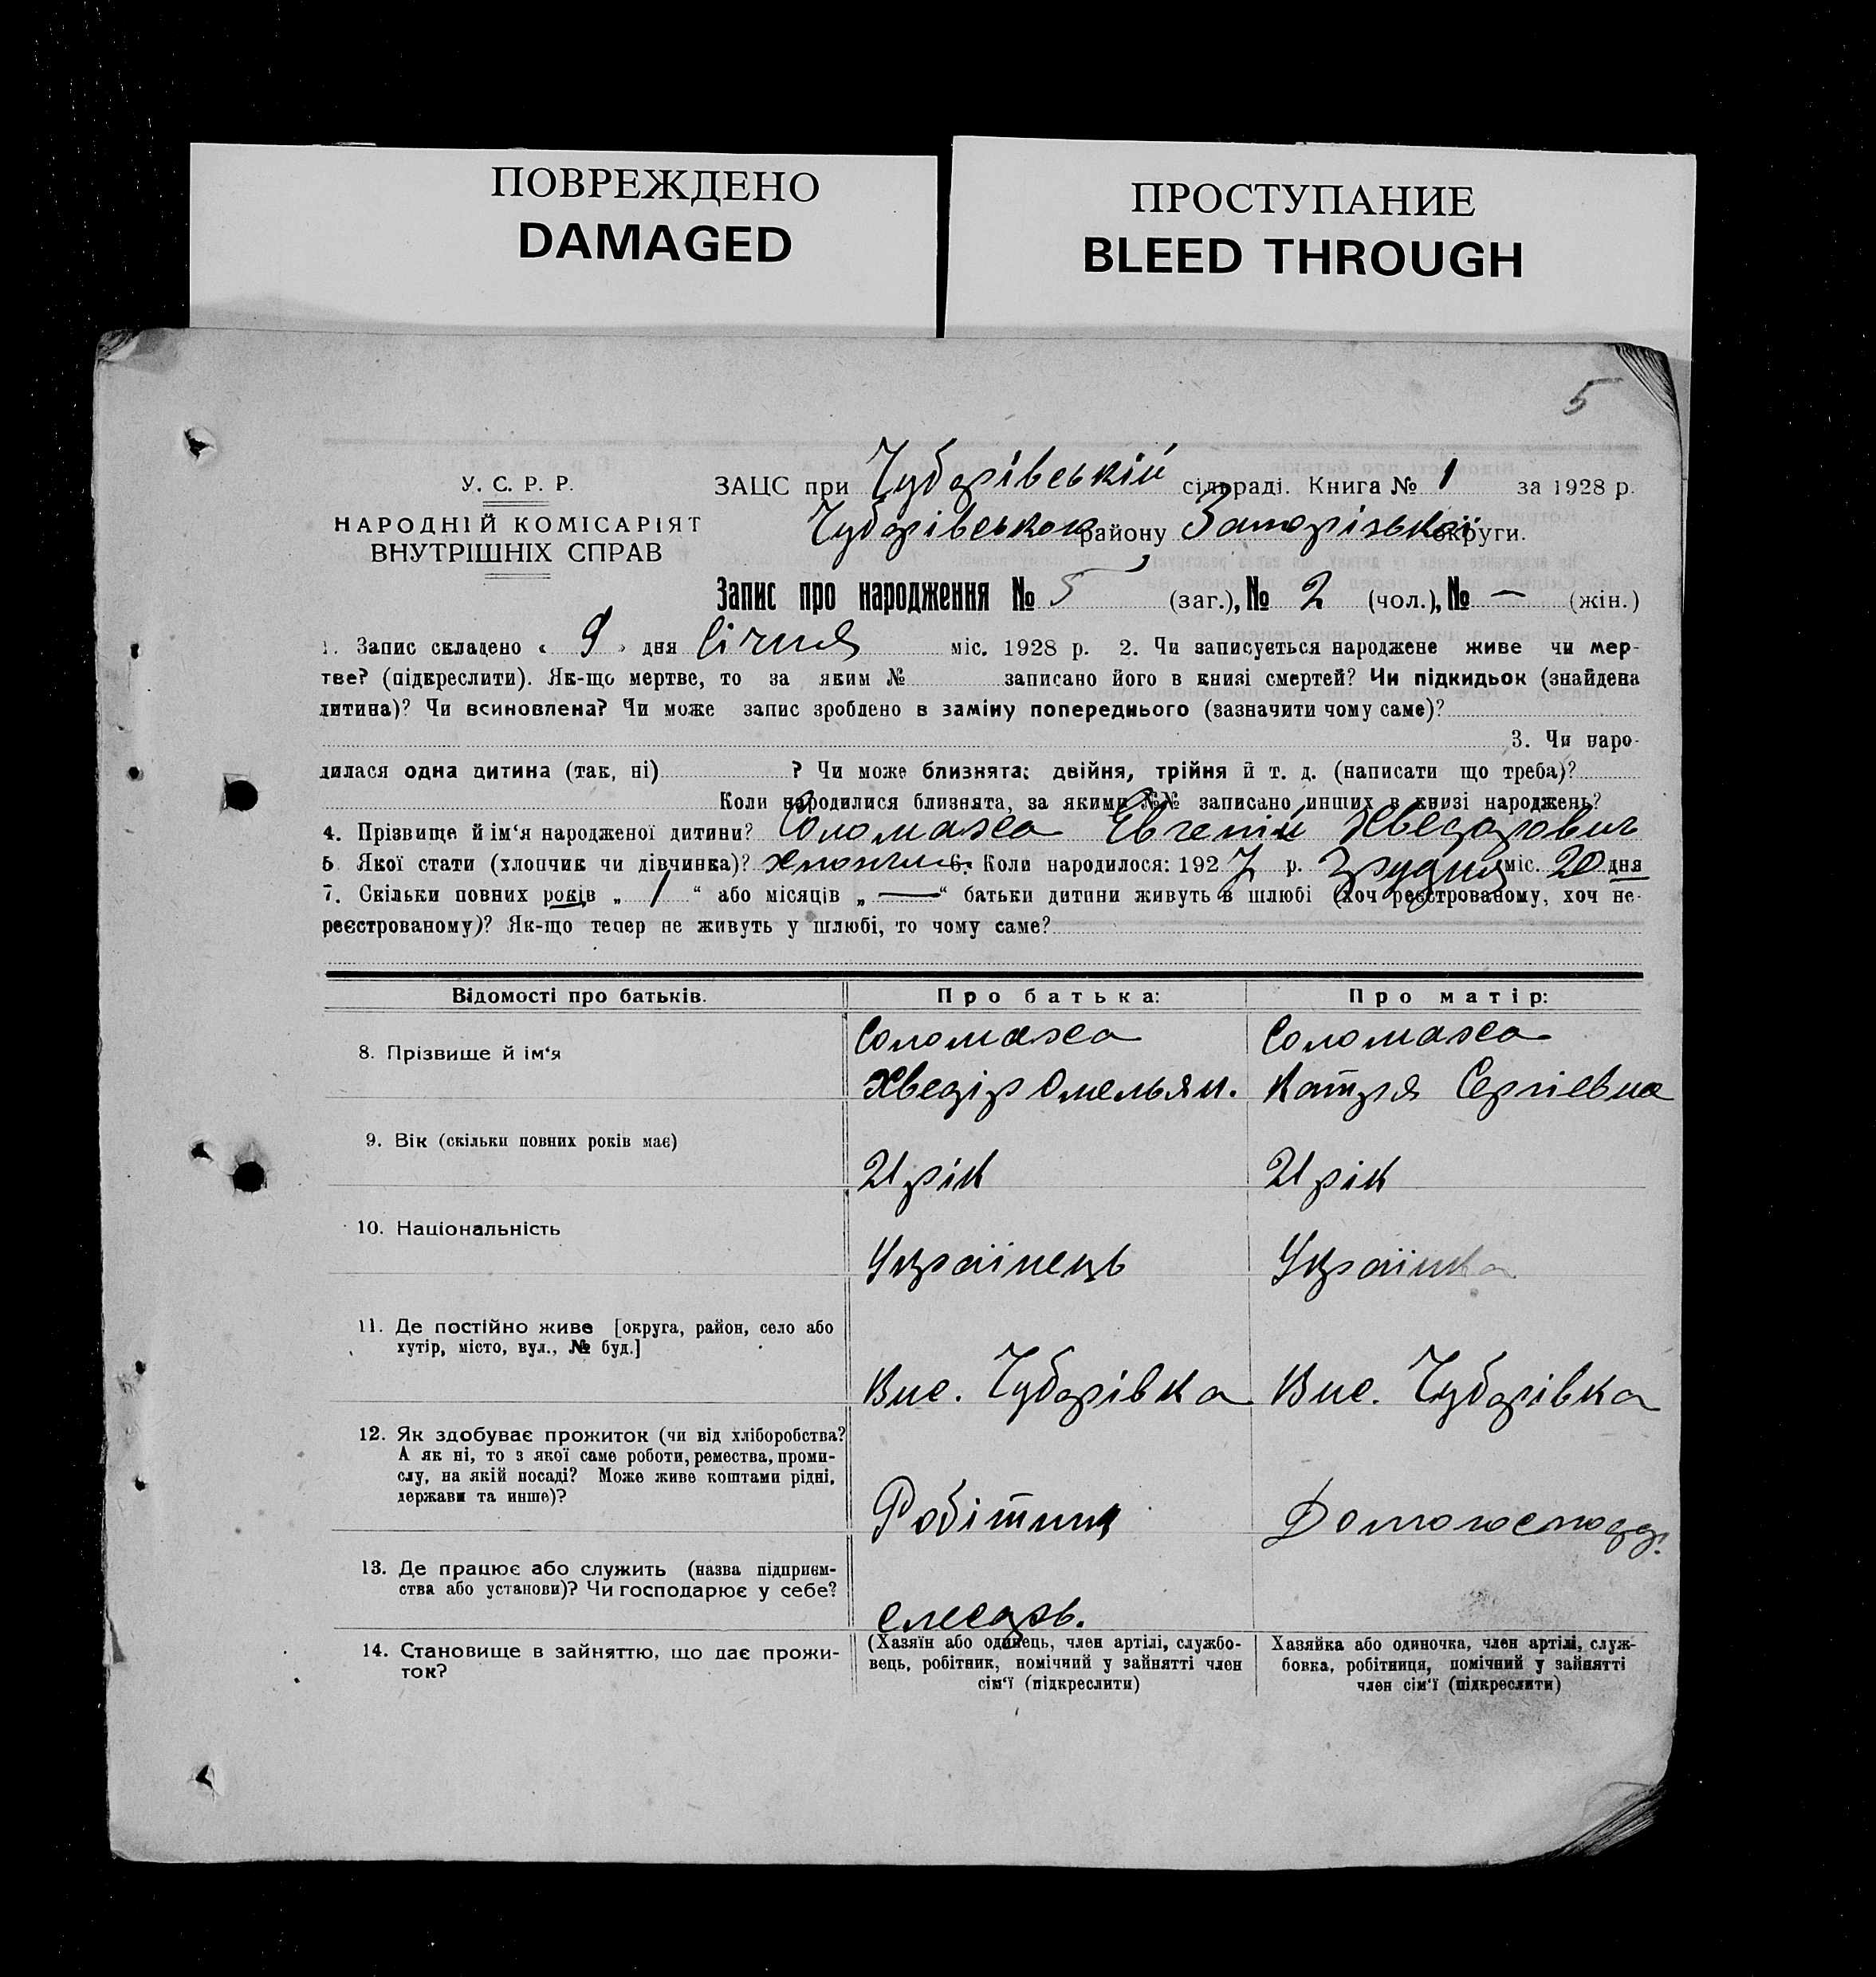 ПОВРЕЖДЕНО
DAMAGED
ПРОСТУПАНИЕ
BLEED THROUGH
5
У. С. Р. Р.
НАРОДНІЙ КОМІСАРІЯТ
ВНУТРІШНІХ СПРАВ
ЗАЦС при Чубарівській сільраді. Книга № 1 за 1928 р.
Чубарівського району Запорізької округи.
Запис про народження № 5 (заг.), № 2 (чол.), № — (жін.)
1. Запис складено « 9 » дня Січня міс. 1928 р. 2. Чи записується народжене живе чи мер-
тве? (підкреслити). Як-що мертве, то за яким № записано його в книзі смертей? Чи підкидьок (знайдена
дитина)? Чи всиновлена? Чи може запис зроблено в заміну попереднього (зазначити чому саме)?
3. Чи наро-
дилася одна дитина (так, ні) ? Чи може близнята: двійня, трійня й т. д. (написати що треба)?
Коли народилися близнята, за якими №№ записано инших в книзі народжень?
4. Прізвище й ім‘я народженої дитини? Соломаха Евгеній Хведорович
5 Якої стати (хлопчик чи дівчинка)? хлопчик 6. Коли народилося: 1927 р. Грудня міс. 20 дня
7. Скільки повних років „ 1 “ або місяців „ — “ батьки дитини живуть в шлюбі (хоч реєстрованому, хоч не-
реєстрованому)? Як-що тепер не живуть у шлюбі, то чому саме?
Відомості про батьків. Про батька: Про матір:
8. Прізвище й ім‘я Соломаха Соломаха
Хведір Омельян. Катря Сергіевна
9. Вік (скільки повних років має) 21 рік 21 рік
10. Національність Українець Українка
11. Де постійно живе [округа, район, село або
хутір, місто, вул., № буд.]
Вис. Чубарівка Вис. Чубарівка
12. Як здобуває прожиток (чи від хліборобства?
А як ні, то з якої саме роботи, ремества, проми-
слу, на якій посаді? Може живе коштами рідні,
держави та инше)?
Робітник Домогосподар.
13. Де працює або служить (назва підприєм-
ства або установи)? Чи господарює у себе?
слесарь.
14. Становище в зайняттю, що дає прожи-
ток?
(Хазяїн або одинець, член артілі, службо-
вець, робітник, помічний у зайнятті член
сім‘ї (підкреслити)
Хазяйка або одиночка, член артілі, служ-
бовка, робітниця, помічний у зайнятті
член сім‘ї (підкреслити)